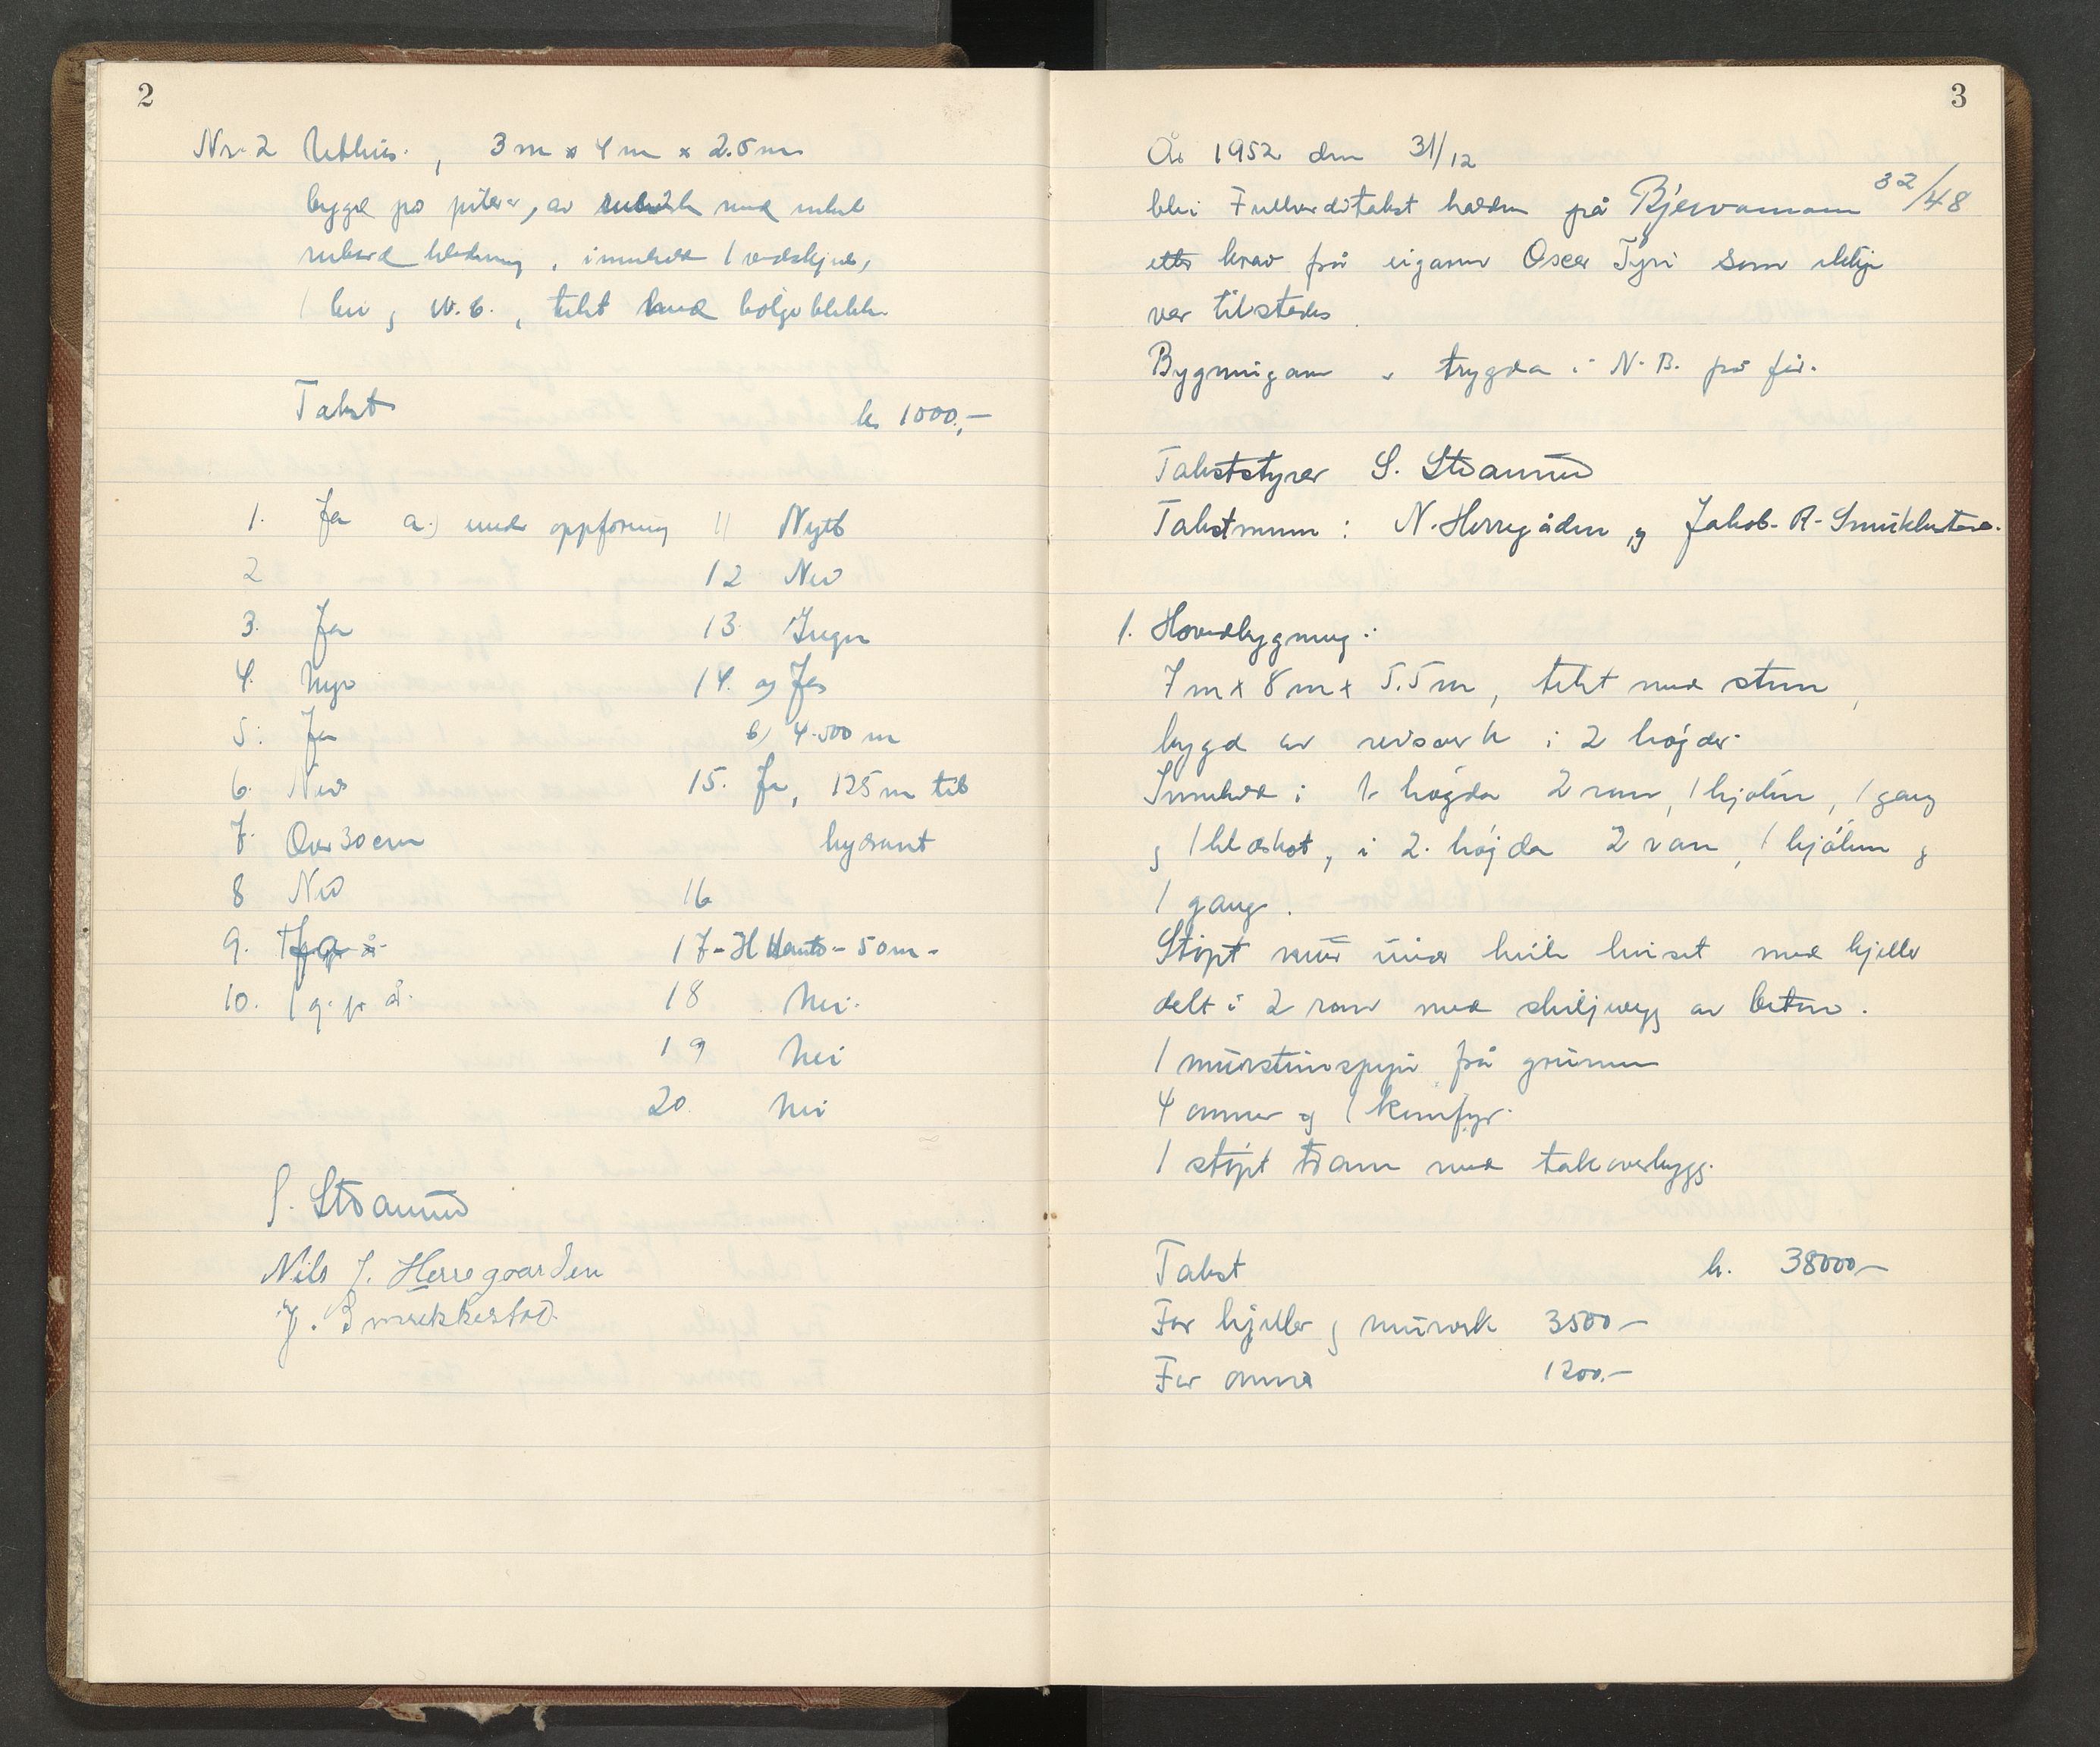 2
Nr. 2 Uthus. , 3 m x 4 m x 2.5 m
bygd på pilarar, av med enkel
kledning, innehald 1 vedskjul,
1 bu og W.C., tekt med bølgeblekk
Takst kr 1000,-
1. Ja a.) under oppföring 11 Nytt
2 12 Nei
3. Ja 13. Ingen
4. Mur 14. a) Ja
5. Ja b) 4.500 m
6. Nei 15. Ja, 125 m til
7. Over 30 cm hydrant
8 Nei 16
9. 17 - H - 50 m -
10. 1 g. pr år. 18 Nei.
19 Nei
20. Nei
S. Straumé
Nils J. Herregaarden
J. Smrekkestad.
3
År 1952 den 31/12
blei Fullverditakst halden på 32/48
etter krav frå eigaren Oscar Tyri som ikkje
var tilstades.
Bygningane trygda i N. B. frå før.
Takststyrar S. Straume
Takstmenn : N. Herregården og Jakob. R.
1. Hovedbygning :
7 m x 8 m x 5.5 m, tekt med stein,
bygd av reisverk i 2 højder.
Innehald i 1. høgda 2 rom, 1 kjøken, 1 gang
og 1 kleskot, i 2. højda 2 rom, 1 kjøken og
1 gang.
Støpt mur under heile huset med kjeller
delt i 2 rom med skiljevegg av betong.
1 mursteinspipe frå grunnen
4 omnar og 1 komfyr.
1 støpt tram med takoverbygg.
Takst kr. 38000-
For kjeller og murverk 3500-
For omnar 1200.-